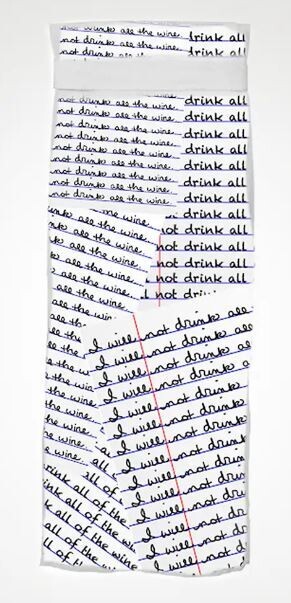 not drink all the wine. drink all
not drink all the wine. drink all
not drink all the wine. drink all
not drink all the wine. drink all
not drink all the wine. drink all
not drink all the wine. drink all
not drink all the wine. drink all
not drink all the wine. drink all
not drink all the wine. drink all
not drink all the wine. drink all
not drink all the wine.
not drink all the wine.
drink all
not drink all
not drink all
not drink all
not drink all
not drink
all the wine.
all the wine.
all the wine.
all the wine.
all the wine.
all the wine.
all the
all the
the wine.
the wine.
the wine.
the wine.
wine.
I will not drink all
I will not drink all
I will not drink a
I will not drink
I will not drink
I will not drink
I will not drin
I will not drin
I will not dri
I will not dri
I will not dr
I will not d
all of
drink all of the
all of the wine
all of the wine
all of the